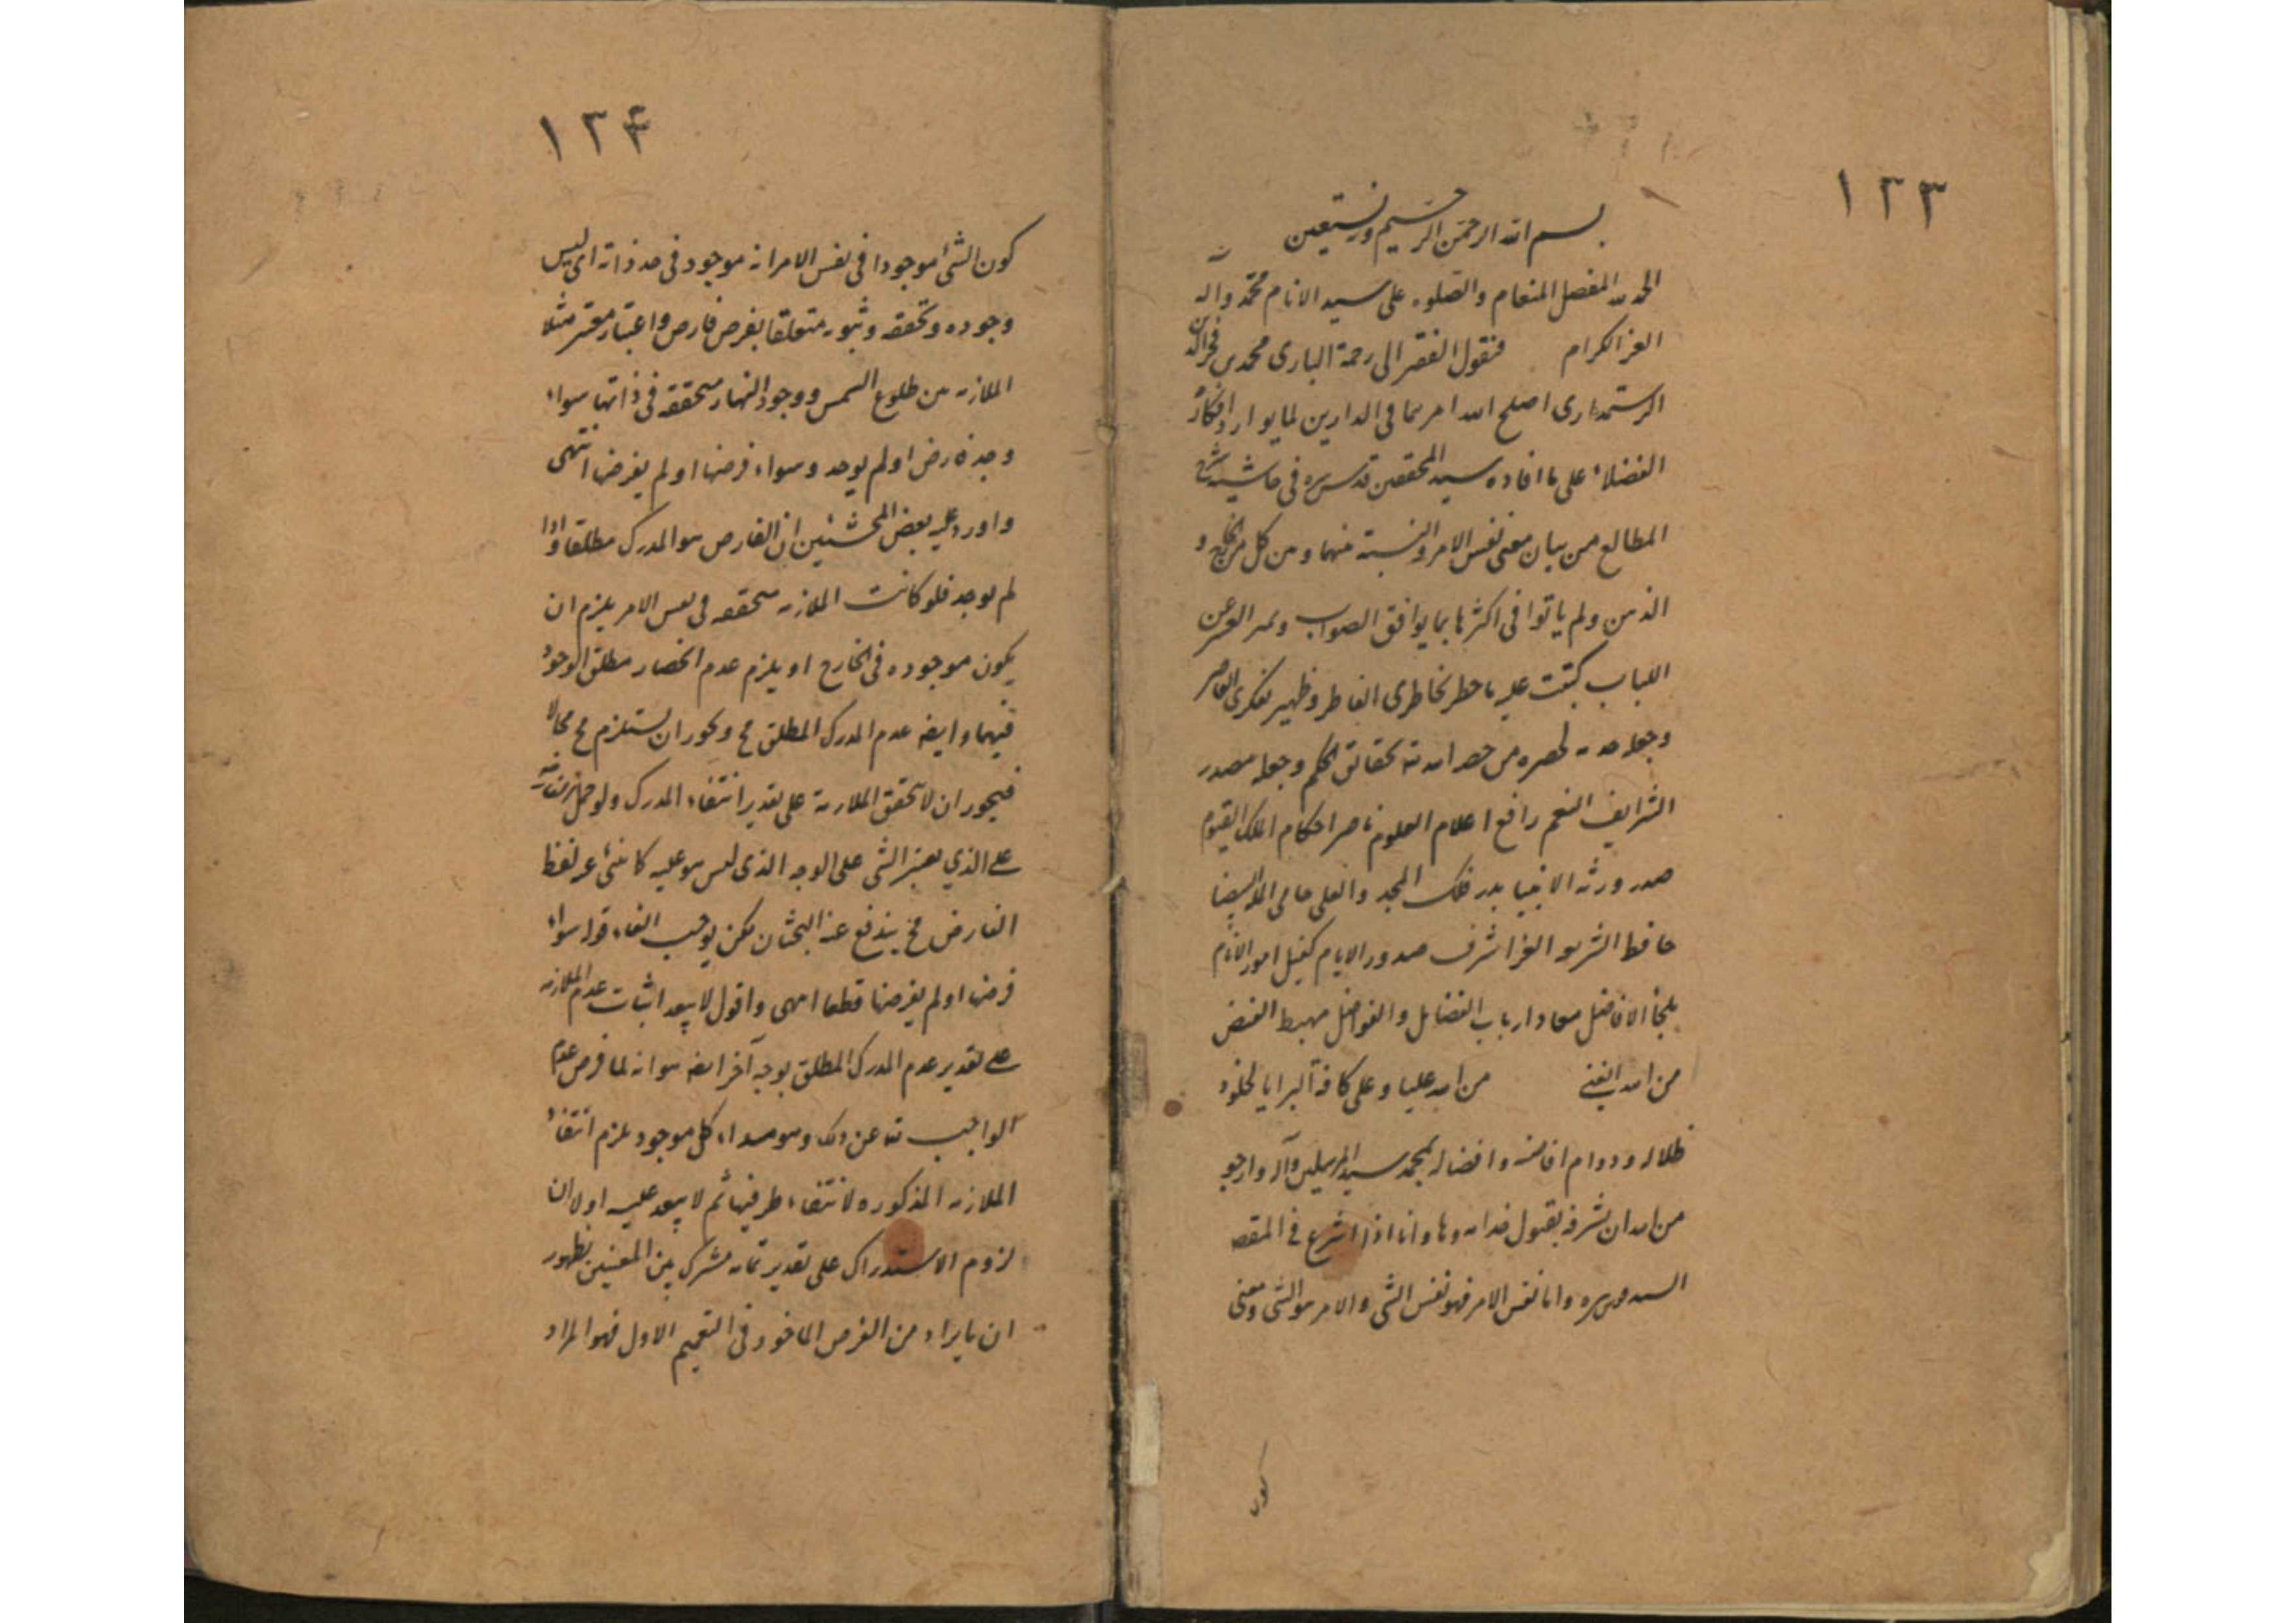 ١٢٣
بسم الله الرحمن الرحيم وبه نستعين
الحمد لله المفضل المنعام والصلوه على سيد الانام محمد واله
الغر الكرام فنقول الفقير الى رحمة البارى محمد بن فخر الدين
الرستمدارى اصلح الله امرهما فى الدارين لما افكار
الفضلاء على ما افاده سيد المحققين قدس سره فى حاشية شرح
المطالع من بيان معنى نفس الامر والنسبة منهما ومن كل من الخارج و
الذهن ولم ياتوا فى اكثرها بما يوافق الصواب القشر عن
اللباب كتبت عليه ما خطر بخاطرى الفاطر وظهر لفكرى القاصر
وجعله لحضره من الله بحقائق الحكم وجعله مصدر
الشرايف النعم رافع اعلام العلوم ناصر احكام الملك القيوم
صدر ورثه الانبيا بدر فلك المجد والعلى حامى المله البيضا
حافظ الشريعه الغرا اشرف صدور الايام كفيل امور الانام
ملجأ الافاضل معاد ارباب الفضايل والفواضل مهبط الفيض
من الله الغنى من الله علينا وعلى كافة البرايا بخلود
ظلاله ودوام وافضاله بمحمد سيد المرسلين وآله وارجو
من الله ان يشرفه بقبول وها وانا اذا اشرع فى المقصد
السيد قدس سره واما نفس الامر فهو نفس الشى والامر هو الشى ومعنى
كون
١٢۴
كون الشئ موجودا فى نفس الامر انه موجود فى حد ذاته اى ليس
وجوده وتحققه وثبوته متعلقا بفرض فارض واعتبار معتبر مثلا
الملازمه بين طلوع الشمس ووجود النهار متحققه فى ذاتها سواء
وجد فارض او لم يوجد وسواء فرضها او لم يفرضها انتهى
واورد عليه بعض المحشئين ان الفارض هو المدرك مطلقا واذا
لم يوجد فلو كانت الملازمه متحققه فى نفس الامر يلزم ان
يكون موجوده فى الخارج او يلزم عدم انحصار مطلق الوجود
فيهما وايضه عدم المدرك المطلق مح ويجوز ان يستلزم مح محالا
فيجوز ان لا يتحقق الملازمة على تقدير انتفاء المدرك ولو حمل
على الذي يعتبر الشى على الوجه الذى ليس هو عليه كا ينبئ عنه لفظ
الفارض فح يندفع عنه البحثان لكن يوجب الغاء قوله سواء
فرضها او لم يفرضها قطعا انتهى واقول لا يبعد اثبات عدم الملازمه
على تقدير عدم المدرك المطلق بوجه آخر ايضه هو انه لما فرض عدم
الواجب تع عن ذلك وهو مبداء كل موجود يلزم انتفاء
الملازمه المذكوره لانتفاء طرفيها ثم لا يبعد عليه اولا ان
لزوم الاستدراك على تقدير تمامه مشترك بين المعنيين لظهور
ان ما يراد من الفرض الماخوذ فى التعميم الاول فهو المراد